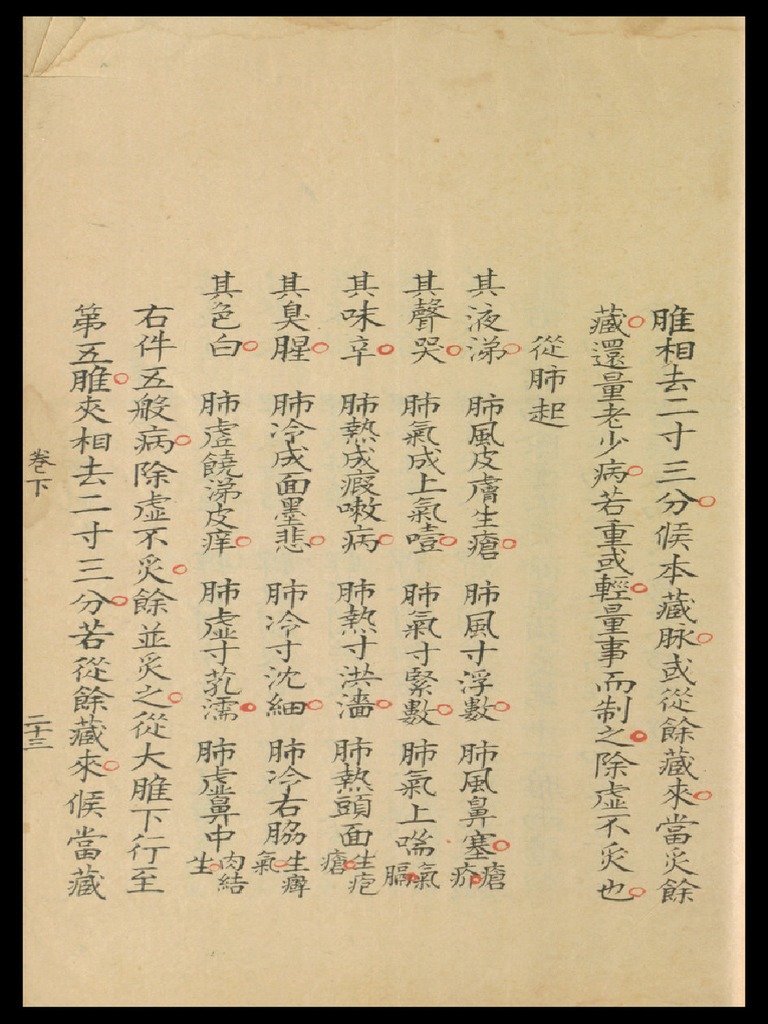 脽相去二寸三分候本藏脉或從餘藏來當炙餘
藏還量老少病若重或輕量事而制之除虛不炙也
從肺起
其液涕 肺風皮膚生瘡 肺風寸浮數 肺風鼻塞瘡疥
其聲哭 肺氣成上氣噎 肺氣寸緊數 肺氣上喘氣膈
其味辛 肺熱成瘕嗽病 肺熱寸洪濇 肺熱頭面生疱瘡
其臭腥 肺冷成面墨悲 肺冷寸沈細 肺冷右脇生癖氣
其色白 肺虛饒涕皮痒 肺虛寸芤濡 肺虛鼻中肉結生
右件五般病除虛不炙餘並炙之從大脽下行至
第五脽夾相去二寸三分若從餘藏來候當藏
卷下
二十三